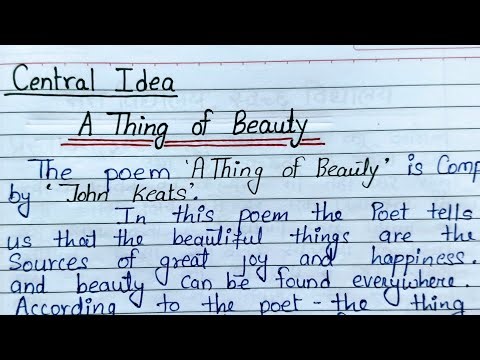 Central Idea
A Thing of Beauty
The poem 'A Thing of Beauty' is Comp
by 'John Keats'.
In this poem the Poet tells
us that the beautiful things are the
Sources of great joy and happiness.
and beauty can be found everywhere.
According to the poet - the thing